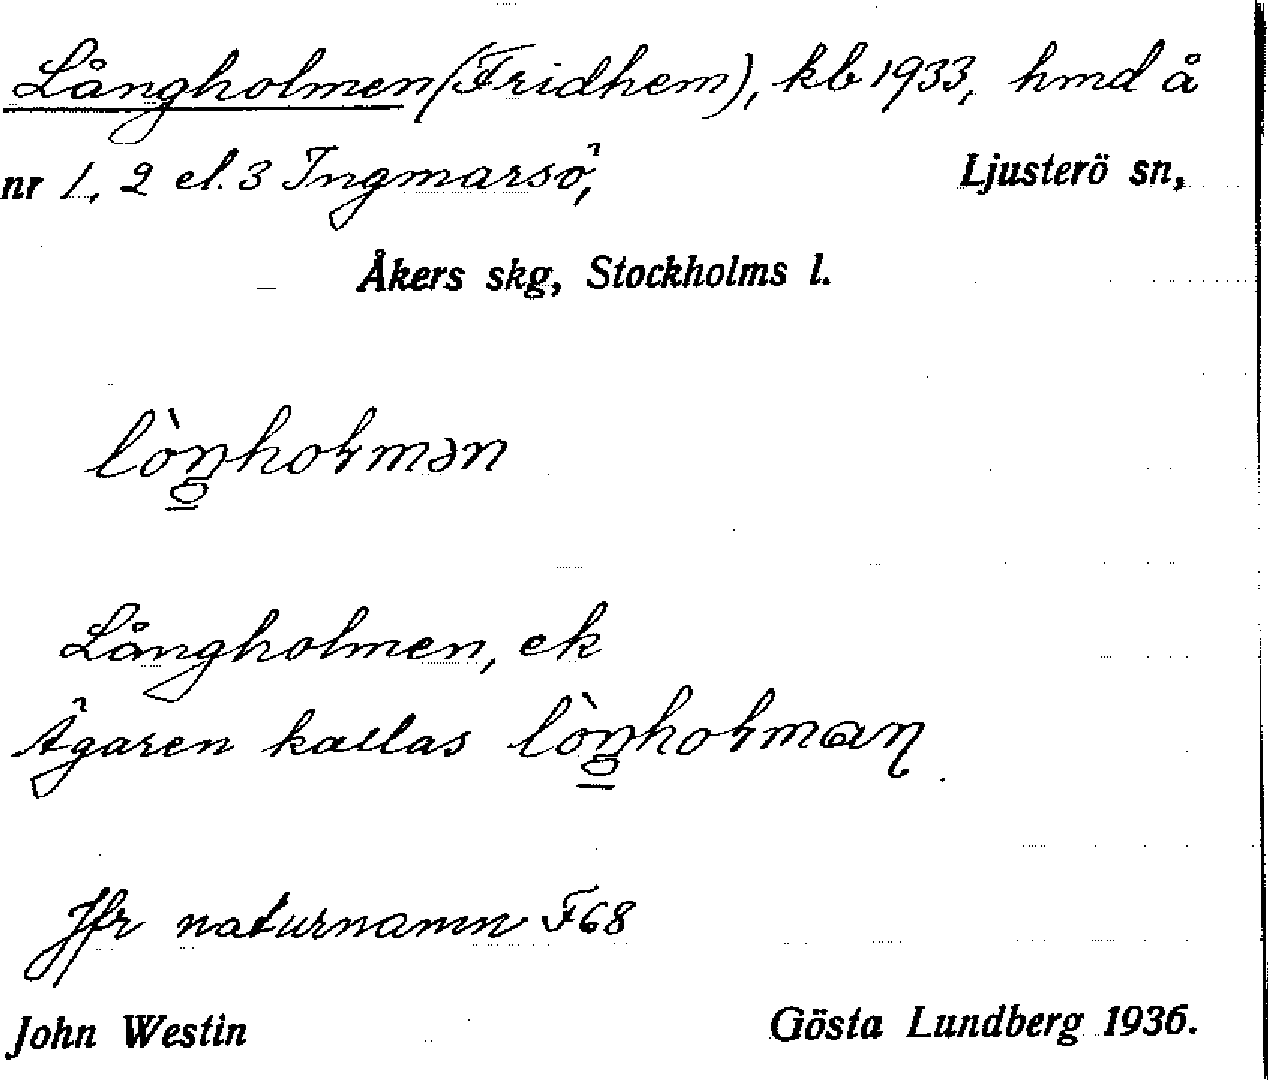 Långholmen (Fridhem), kb 1933, hmd å
nr 1, 2 el. 3 Ingmarsö, Ljusterö sn,
Åkers skg, Stockholms l.
lòŋhoɫmən
Långholmen, ek
Ägaren kallas lòŋhoɫmaɳ.
Jfr naturnamn F68
John Westin Gösta Lundberg 1936.